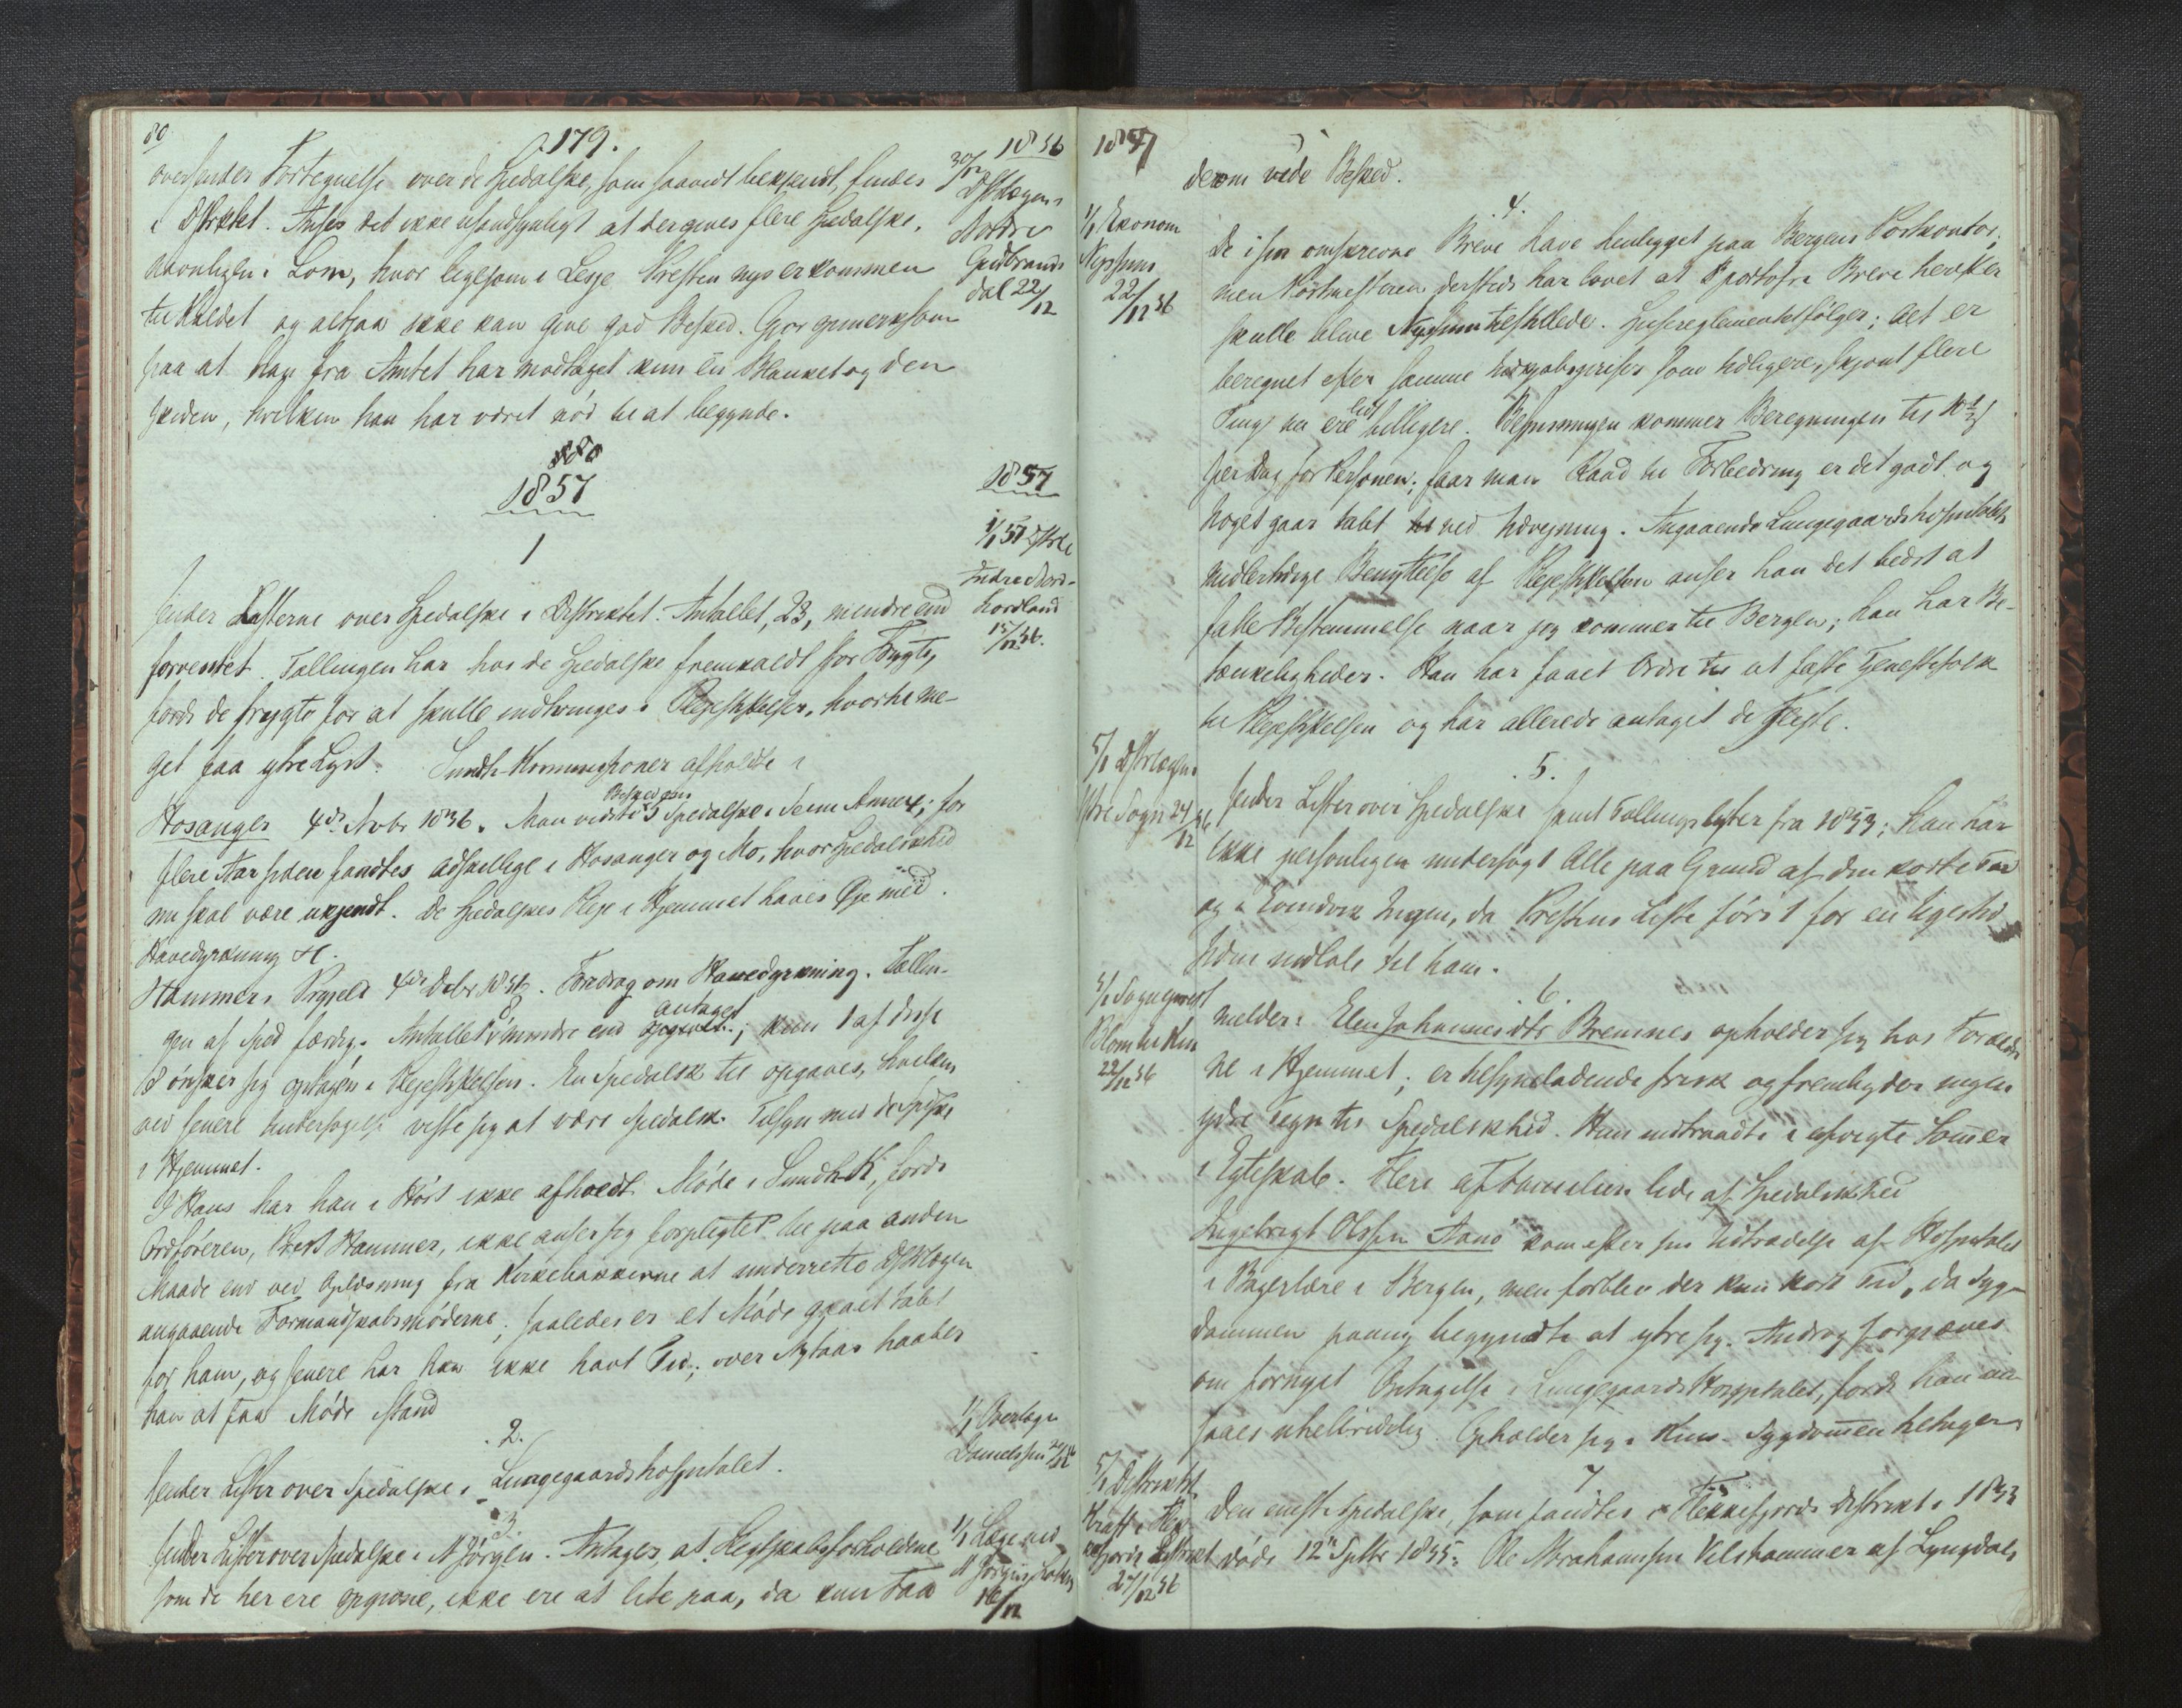 80
179.
1856
oversender Fortegnelse over de Spedalske, som saavidt bekjendt, findes
30/12 Dstlægen i
i Dstriktet. Anser det ikke usandsynligt at der gives flere Spedalske,
Nordre
navnligen i Lom, hvor ligesom i Lesje Presten nys er kommen
Gudbrands
dal 22/12
til Kaldet og altsaa ikke kan give god Besked. Gjør opmerksom
paa at han fra Amtet har modtaget kun én Blanket og den
senden, hvilken han har været nød til at begynde.
1857
1857
1
1/1 57 Dstrl i
Indre Nord-
sender Listerne over Spedalske i Distriktet. Antallet, 23, mindre end
hordland
15/12 56.
forventet. Tællingen har hos de Spedalske fremkaldt stor Frygt,
fordi de frygte for at skulle indtvinges i Plejestiftelser, hvortil me-
get faa ytre Lyst. Sundh. Kommissioner afholdte i
Hosanger 4de Novbr 1856. Man vidste Besked om 3 Spedalske i Seim Annex; for
flere Aar siden fandtes adskillige i Hosanger og Mo, hvor Spedalskhed
nu skal være ukjendt. De Spedalskes Pleje i Hjemmet haves Øje med.
Havedyrkning &.
Hammers Prgjeld 4de Debr 1856. Foredrag om Havedyrkning. Tællin-
gen af Sped færdig. Antallet 8 mindre end antaget; kun 1 af disse
8 ønsker sig optagen i Plejestiftelsen. En Spedalsk til opgaves, hvilken
ved senere Undersøgelse viste sig at være spedalsk. Tilsyn med de Spedske
i Hjemmet.
I Haus har han i Høst ikke afholdt Møde i Sundh K, fordi
Ordføreren, Prest Hammer, ikke anser sig forpligtet til paa anden
Maade end ved Oplæsning fra Kirkebakkerne at underrette Dstlægen
angaaende Formandskabsmøderne; saaledes er et Møde gaaet tabt
for ham, og senere har han ikke havt Tid; over Nytaar haaber
han at faa Møde istand
2.
1/1 Overlæge
Danielssen 24/12
sender Lister over Spedalske i Lungegaardshospitalet.
3.
1/1 Læge ved
sender Lister over Spedalske i St Jørgen. Antages at Slegtskabsforholdene
St Jørgens hospital
16/12
som de her ere opgivne, ikke ere at lite paa, da kun Faa
1857
derom vide Besked.
4.
1/1 Ekonom
Nyssens
22/12 56
De i sin omskrevne Breve have henligget paa Bergens Postkontor;
men Postmesteren dersteds har lovet at portofri Breve herefter
skulle blive Nyssen tilstillede. Husereglementet følger; det er
beregnet efter samme Indkjøbspriser som tidligere, skjønt flere
Ting nu ere lidt billigere. Bespisningen kommer Beregningen til 10½ s
per Dag for Personen; faar man Raad til Forbedring er det godt og
noget gaar tabt ved Udvejning. Angaaende Lungegaardshospitalets
midlertidige Benyttelse af Plejestiftelsen anser han det bedst at
fatte Bestemmelse naar jeg kommer til Bergen; han har Be-
tænkeligheder. Han har faaet Ordre til at fæste Tjenestefolk
til Plejestiftelsen og har allerede antaget de Fleste.
5.
5/1 Dstrlægen i
Ytre Sogn 24/12 56
sender Lister over Spedalske samt Tællingslister fra 1853; han har
ikke personligen undersøgt Alle paa Grund af den korte Tid
og i Evindvik Ingen, da Prestens Liste først for en Ugestid
siden indløb til ham.
6.
5/1 Sogneprest
Blom til Kin
22/12 56
melder: Elen Johannesdtr Bremnes opholder sig hos Foræld
ne i Hjemmet; er tilsyneladende frisk og frembyder ingen
ydre Tegn til Spedalskhed. Hun indtraadte i afvigte Sommer
i Egteskab. Flere af Familien lide af Spedalskhed
Ingebrigt Olsen Aanø kom efter sin Udtrædelse af Hospitalet
i Bagerlære i Bergen, men forblev der kun kort Tid, da Syg-
dommen paany begyndte at ytre sig. Androg forgjæves
om fornyet Optagelse i Lungegaards Hospitalet, fordi han an-
saaes uhelbredelig. Opholder sig i Kinn. Sygdommen tiltager
7
5/1 Distriktsl.
Kraft i Flek-
kefjords Distrikt
27/12 56
Den eneste Spedalske, som fandtes i Flekkefjords Distrikt i 1853
døde 12te Septbr 1855: Ole Abrahamsen Velshammer af Lyngdal